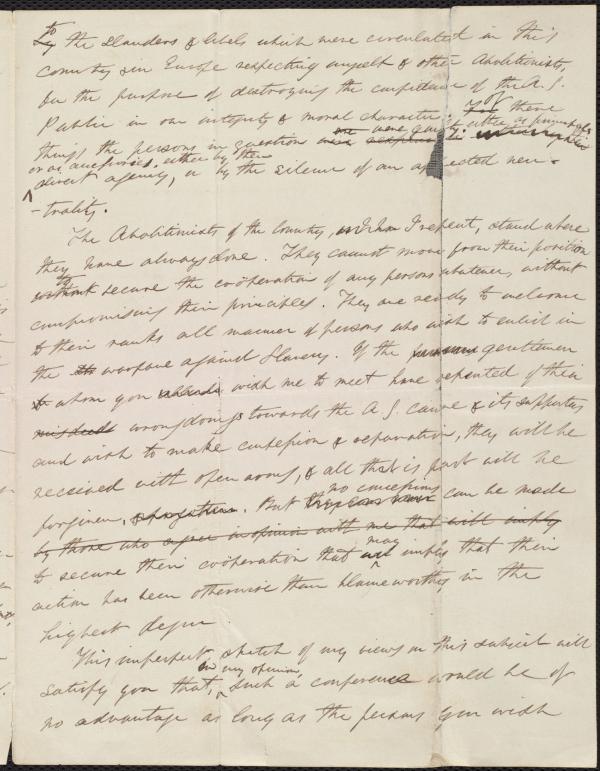 to
by the slanders & libels which were circulated in this
country & in Europe respecting myself & other Abolitionists,
for the purpose of destroying the confidence of the A. S.
Public in our integrity & moral character; & of these
things the persons in question were guilty: either as principals
or as accessories, either by their
direct agency, or by the silence of an affected neu-
-trality.
The Abolitionists of the Country, with whom I repent, stand where
they have always done. They cannot move from their position
to
without secure the coöperation of any persons whatever, without
compromising their principles. They are ready to welcome
to their ranks all manner of persons who wish to enlist in
the warfare against Slavery. If the gentlemen
to whom you wish me to meet have repented of their
misdeeds wrongdoings towards the A. S. cause & its supporters
and wish to make confession & reparation, they will be
received with open arms, & all that is past will be
no concessions
forgiven. But can be made
by those who agree in opinion with me that will imply
may
to secure their coöperation that will imply that their
action has been otherwise than blameworthy, in the
highest degree.
This imperfect sketch of my views on this subject will
in my opinion,
satisfy you that, such a conference would be of
no advantage as long as the persons you wish